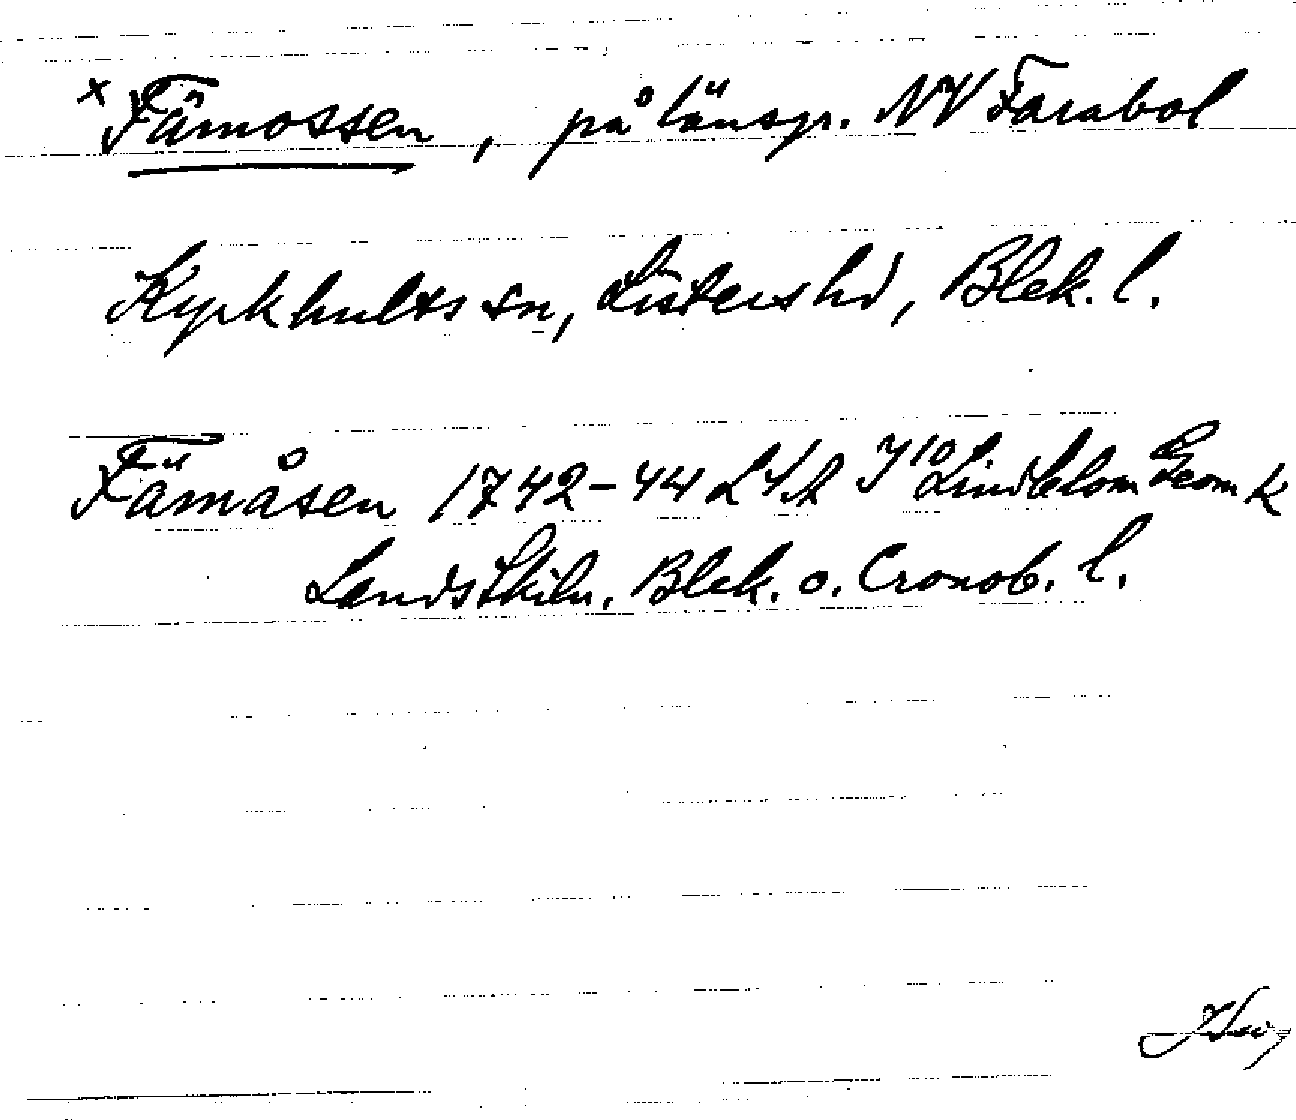 x Fämossen, på länsgr. NV Farabol
Kyrkhults sn, Listers hd, Blek. l.
Fämåsen 1742-44 LSA J10 Lindblom Geom k
Landsskiln. Blek. o. Cronob. l.